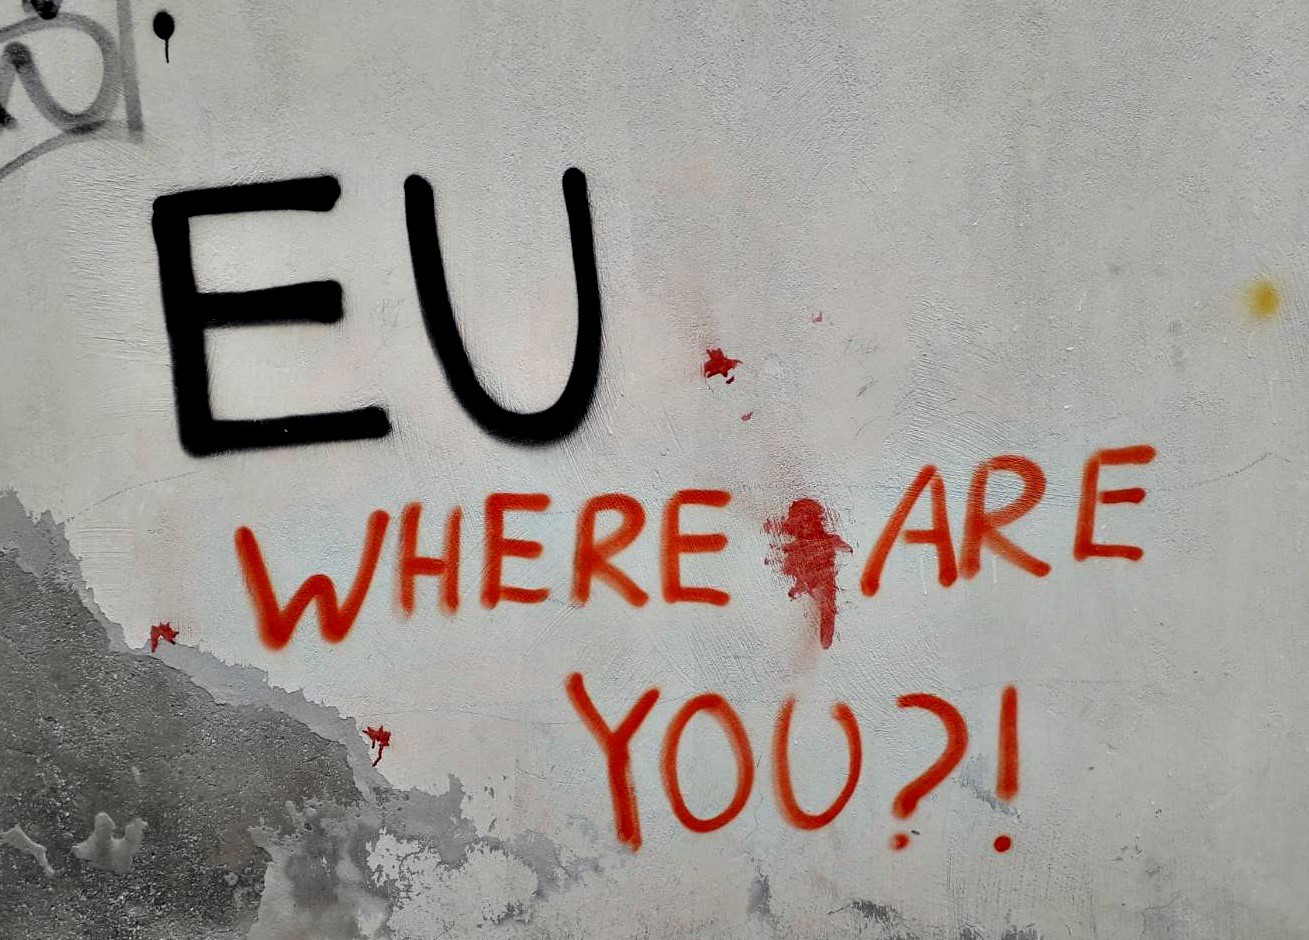 EU
WHERE ARE
YOU?!